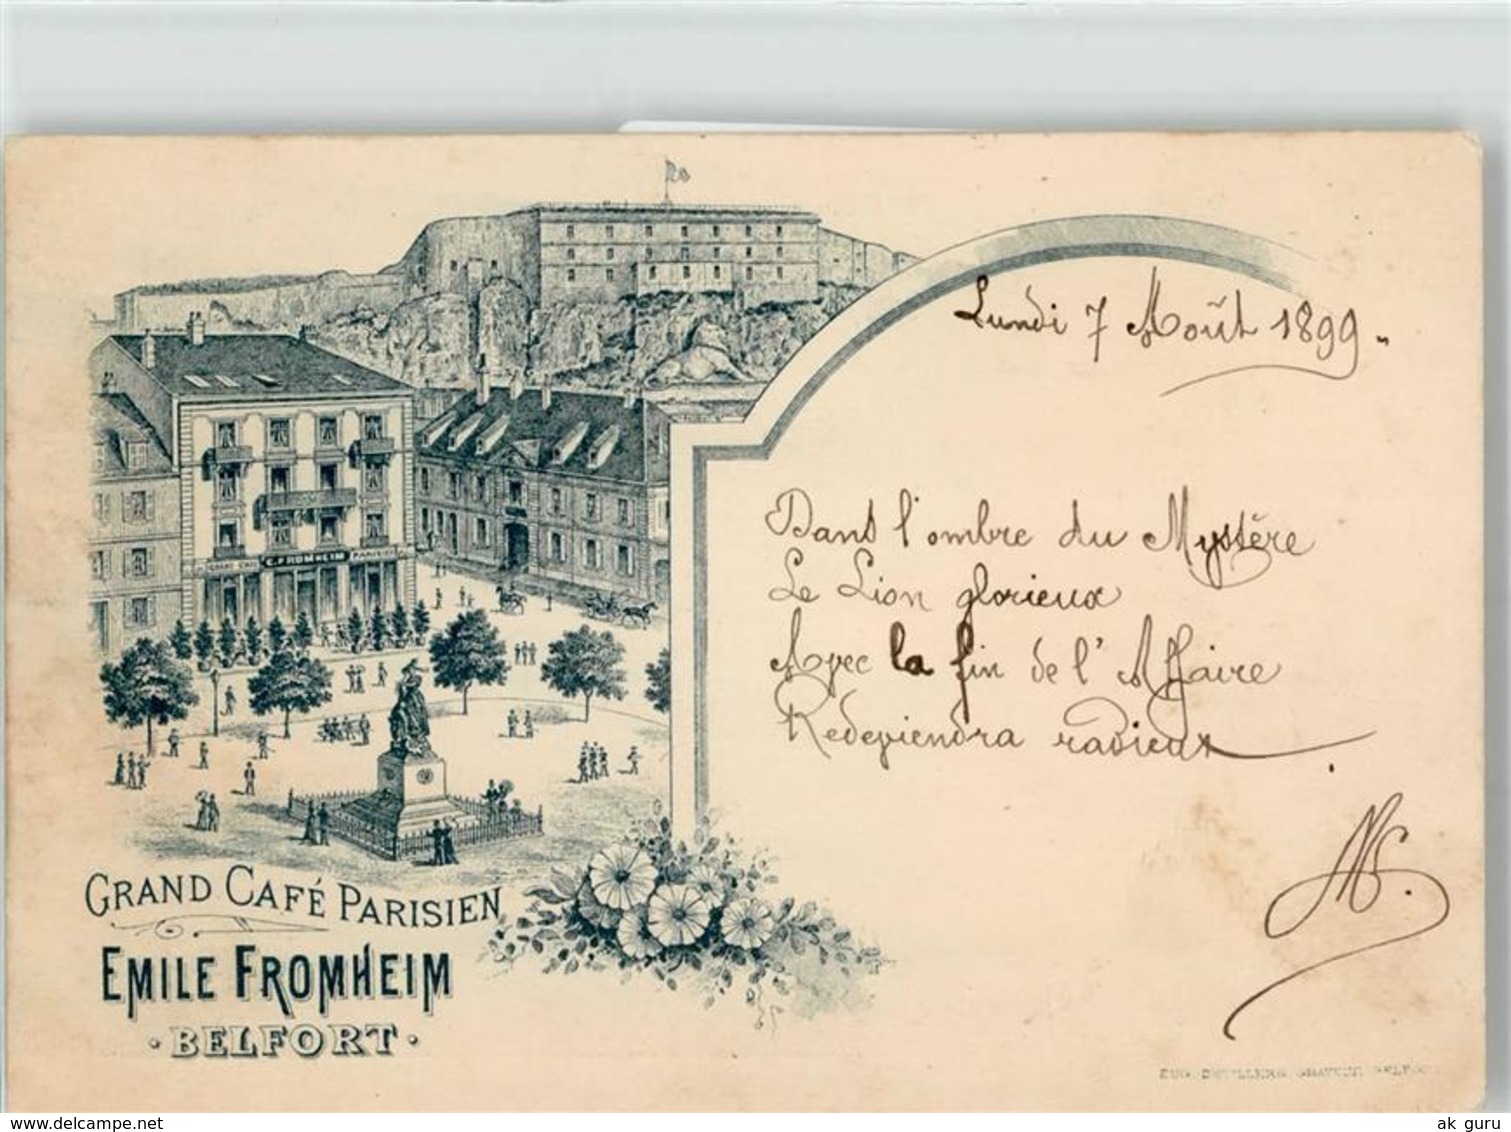 Lundi 7 Août 1899.
Dans l'ombre du Mystère
Le Lion glorieux
Avec la fin de l'Affaire
Redeviendra radieux.
GRAND CAFÉ E. FROMHEIM PARISIEN
GRAND CAFÉ PARISIEN
EMILE FROMHEIM
· BELFORT ·
EUG. GRAVEUR BELFORT
www.delcampe.net
ak_guru